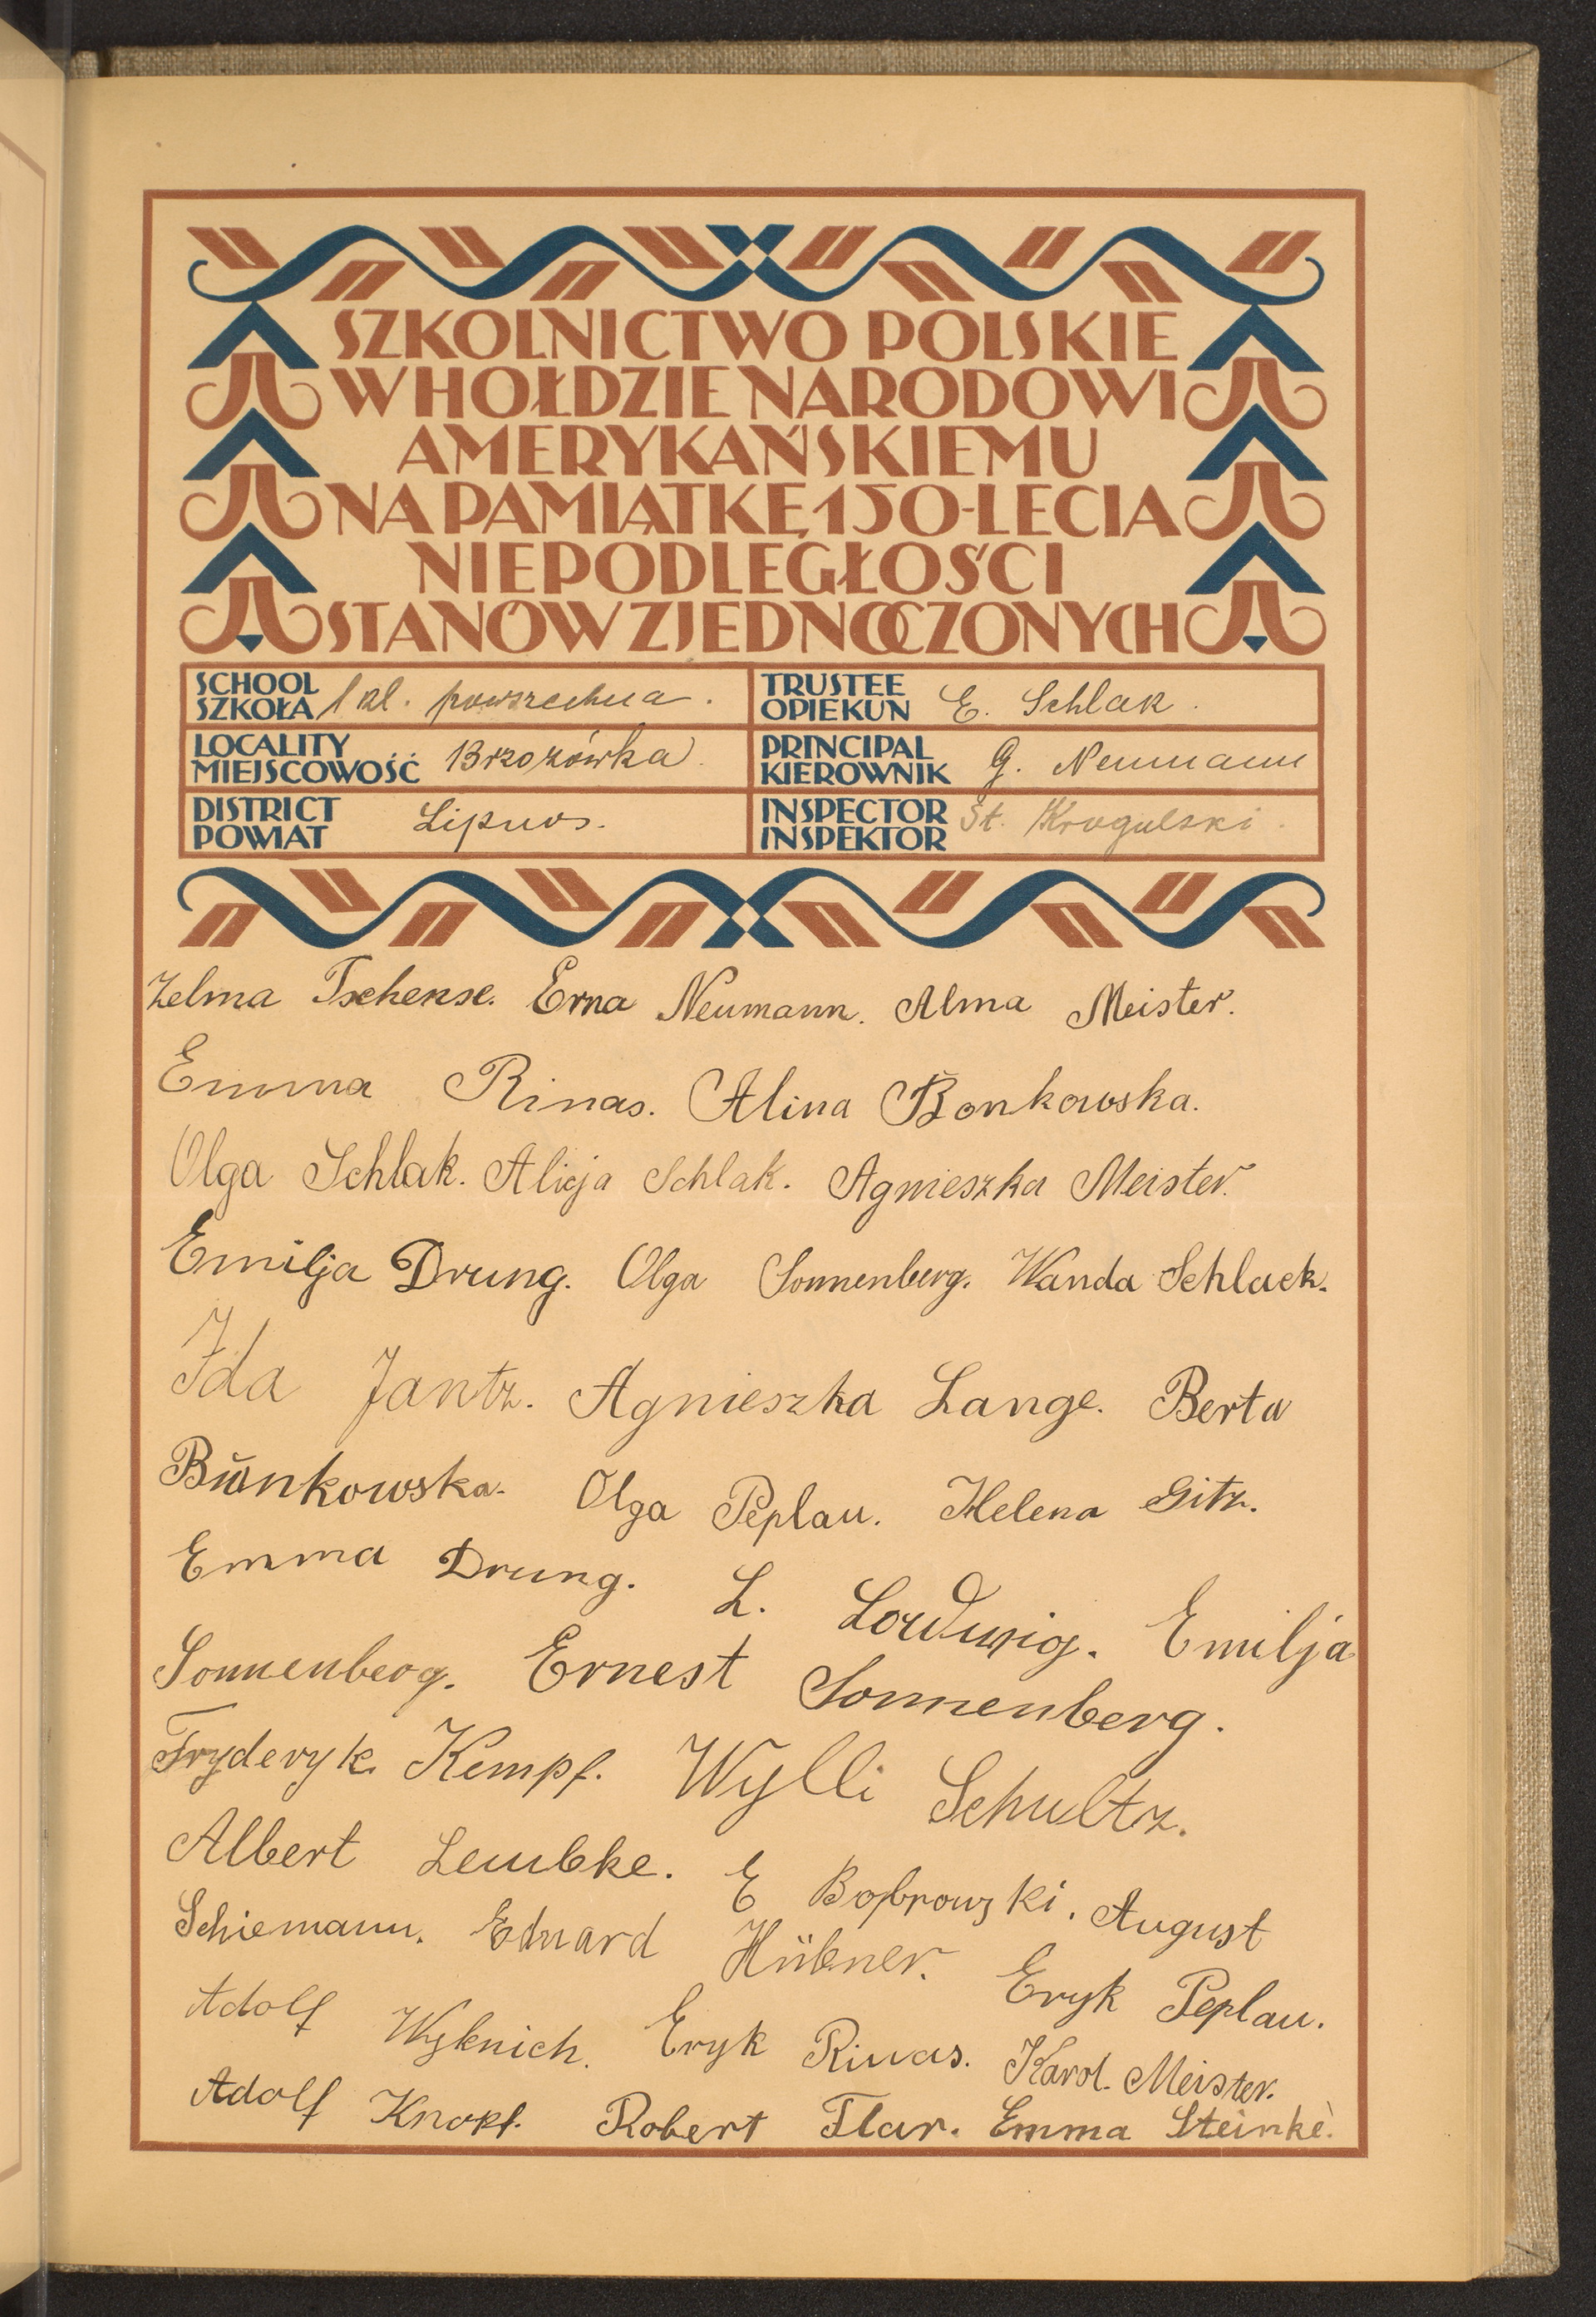 SZKOLNICTWO POLSKIE
W HOŁDZIE NARODOWI
AMERYKAŃSKIEMU
NA PAMIĄTKĘ 150-LECIA
NIEPODLEGŁOŚCI
STANÓW ZJEDNOCZONYCH
SCHOOL
SZKOŁA 1 kl. powszechna.
TRUSTEE
OPIEKUN E. Schlak.
LOCALITY
MIEJSCOWOŚĆ Brzozówka.
PRINCIPAL
KIEROWNIK G. Neumann
DISTRICT
POWIAT Lipnos.
INSPECTOR
INSPEKTOR St. Krogulski.
Zelma Tschense. Erna Neumann. Alma Meister.
Emma Rinas. Alina Bonkowska.
Olga Schlak. Alicja Schlak. Agnieszka Meister.
Emilja Drung. Olga Sonnenberg. Wanda Schlack.
Ida Jantz. Agnieszka Lange. Berta
Bunkowska. Olga Peplau. Helena Gitz.
Emma Drung. L. Lordwig. Emilja
Sonnenberg. Ernest Sonnenberg.
Fryderyk Kempf. Wylli Schultz.
Albert Lembke. E Bobrowski. August
Schiemann. Eduard Hübner. Eryk Peplau.
Adolf Eryk Rinas. Karol Meister.
Adolf Knopf. Robert Flar. Emma Steinke.